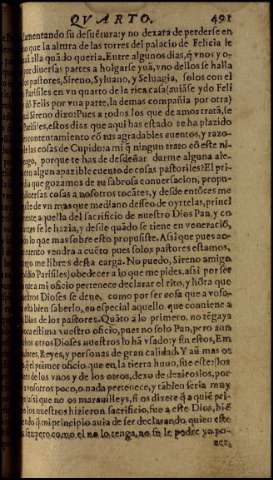 QVARTO. 491
lamentando su desuẽtura: y no dexara de perderse en
que la altura de las torres del palacio de Felicia le
allà quãdo queria. Entre algunos dias, q̃ vnos y o-
por diuersas partes a holgarse yuã, vno dellos se halla
pastores, Sireno, Syluano, y Seluagia, solos con el
Parisiles en vn quarto de la rica casa (auiãse ydo Feli
Felis por vna parte, la demas compañia por otra)
Sireno dixo: Pues a todos los que de amor tratã, le
Parisiles, estos dias que aqui has estado te ha plazido
contentamiento cõ tus agradables cuentos, y razo-
las cosas de Cupido: a mi q̃ ningun trato cõ este ni-
tengo, porque te has de desdeñar darme alguna ale-
algun apazible cuento de cosas pastoriles? El pri-
dia que gozamos de tu sabrosa conuersacion, propu-
diuersas cosas a nosotros tocãtes, y desde entõces me
de vn mas que mediano desseo de oyrtelas, princi
aquella del sacrificio de nuestro Dios Pan, y co-
se le hazia, y desde quãdo se tiene en veneraciõ,
lo que mas sobre esto propusiste. Assi que pues no-
tendra a cuẽto pues solos pastores estamos,
me libres desta carga. No puedo, Sireno amigo
(dixo Parisiles) obedecer a lo que me pides, assi por ser
a mi oficio pertenece declarar el rito, y hõra que
nuestros Dioses se deue, como por ser cosa que a voso-
tros estẽ bien saberlo, en especial aquello que conuiene a
Dios de los pastores. Quãto a lo primero, no tẽgays
poca estima vuestro oficio, pues no solo Pan, pero aun
otros Dioses nuestros lo hã vsado: y sin estos, Em
peradores, Reyes, y personas de gran calidad. Y aũ mas os
q̃ el primer oficio que en la tierra huuo, fue este: los
de los vnos y de los otros, dexo de deziroslos, por
a vosotros poco, o nada pertenece, y tãbien seria muy
assi que no os marauilleys, si os dixere q̃ a quiẽ pri-
los nuestros hizieron sacrificio, fue a este Dios, biẽ
q̃ mi principio auia de ser declarando quien este
pero como el no lo tenga, no se le podre yo po-
ner,